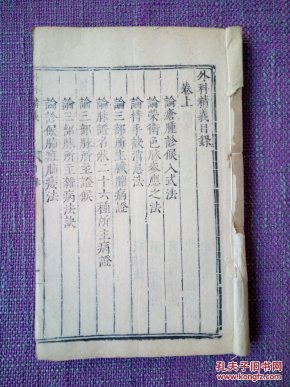 外科精義目錄
卷上
論瘡腫診候入式法
論榮衛色脉參應之法
論持手訣消息法
論三部所主臟腑病證
論脉證名狀二十六種所主病證
論三部脉所主證候
論三部脉所主雜病法
論診候肺疽肺痿法
孔夫子旧书网